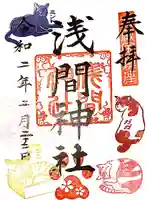 奉拝
浅間神社
令和二年二月二十二日